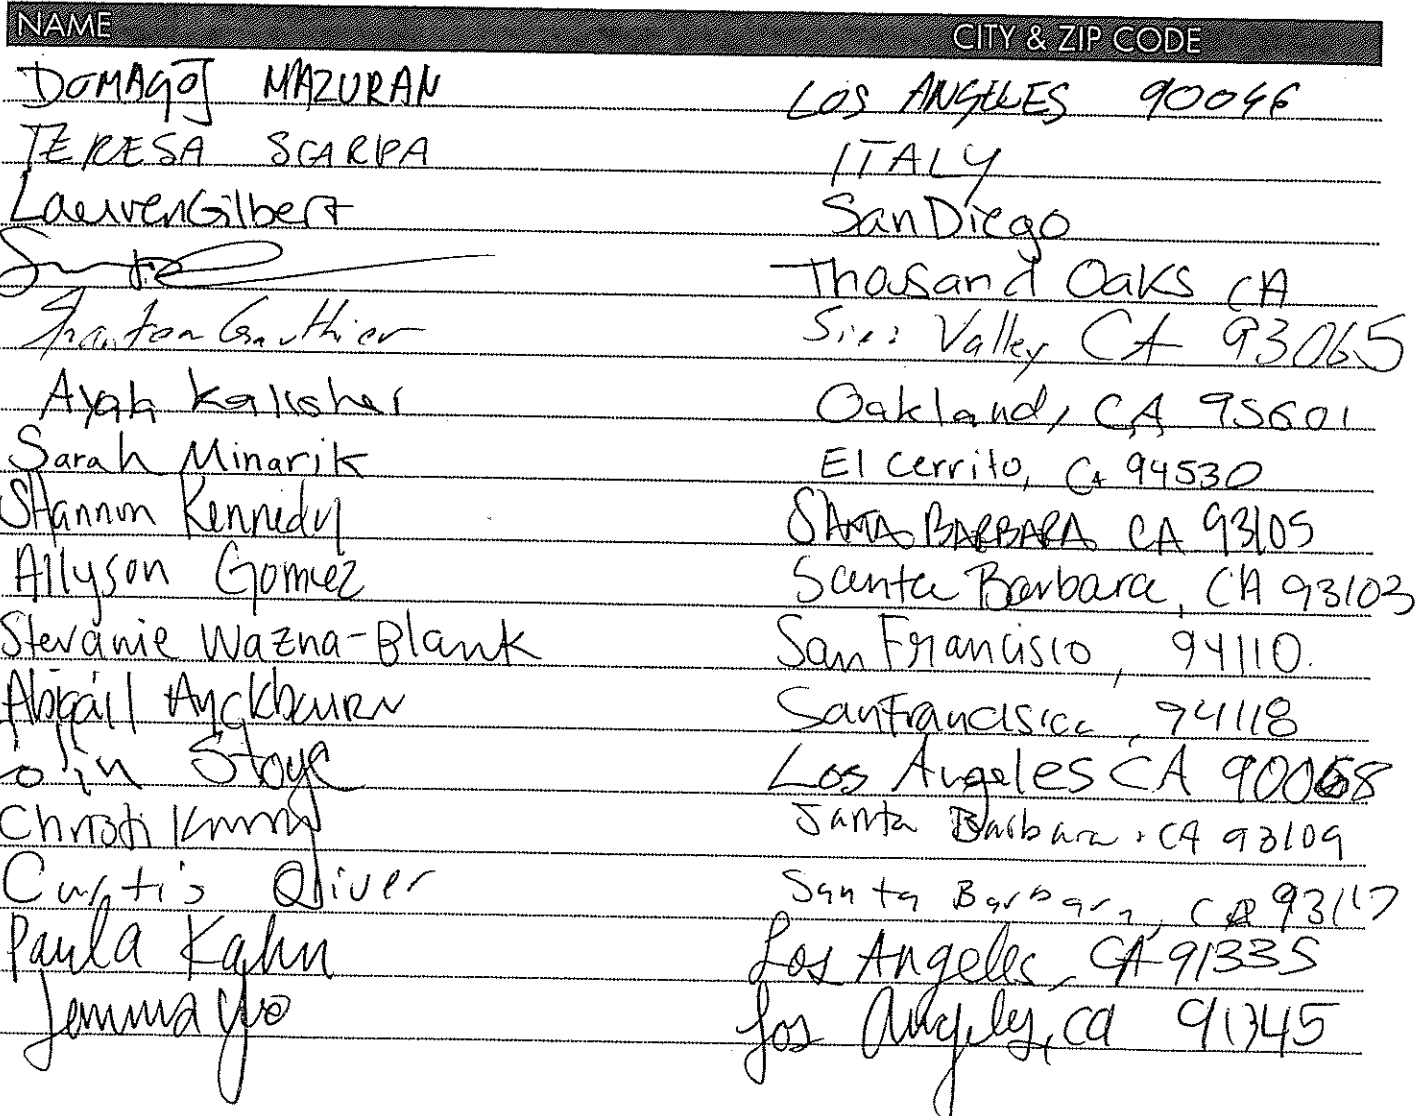 NAME CITY & ZIP CODE
DOMAGOJ MAZURAN LOS ANGELES 90046
TERESA SCARPA ITALY
Lauren Gilbert San Diego
Thosand Oaks CA
Gauthier Simi Valley CA 93065
Ayah Kalisher Oakland, CA 95601
Sarah Minarik El Cerrito, CA 94530
SHannon Kennedy SANTA BARBARA CA 93105
Allyson Gomez Santa Barbara, CA 93103
Stefanie Wazna-Blank San Francisco, 94110.
Abigail Ayckbourn San Francisico, 94118
Stoye Los Angeles CA 90068
Christi Santa Barbara, CA 93109
Curtis Oliver Santa Barbara, CA 93117
Paula Kahn Los Angeles, CA 91335
Jemma Los Angeles, ca 91345